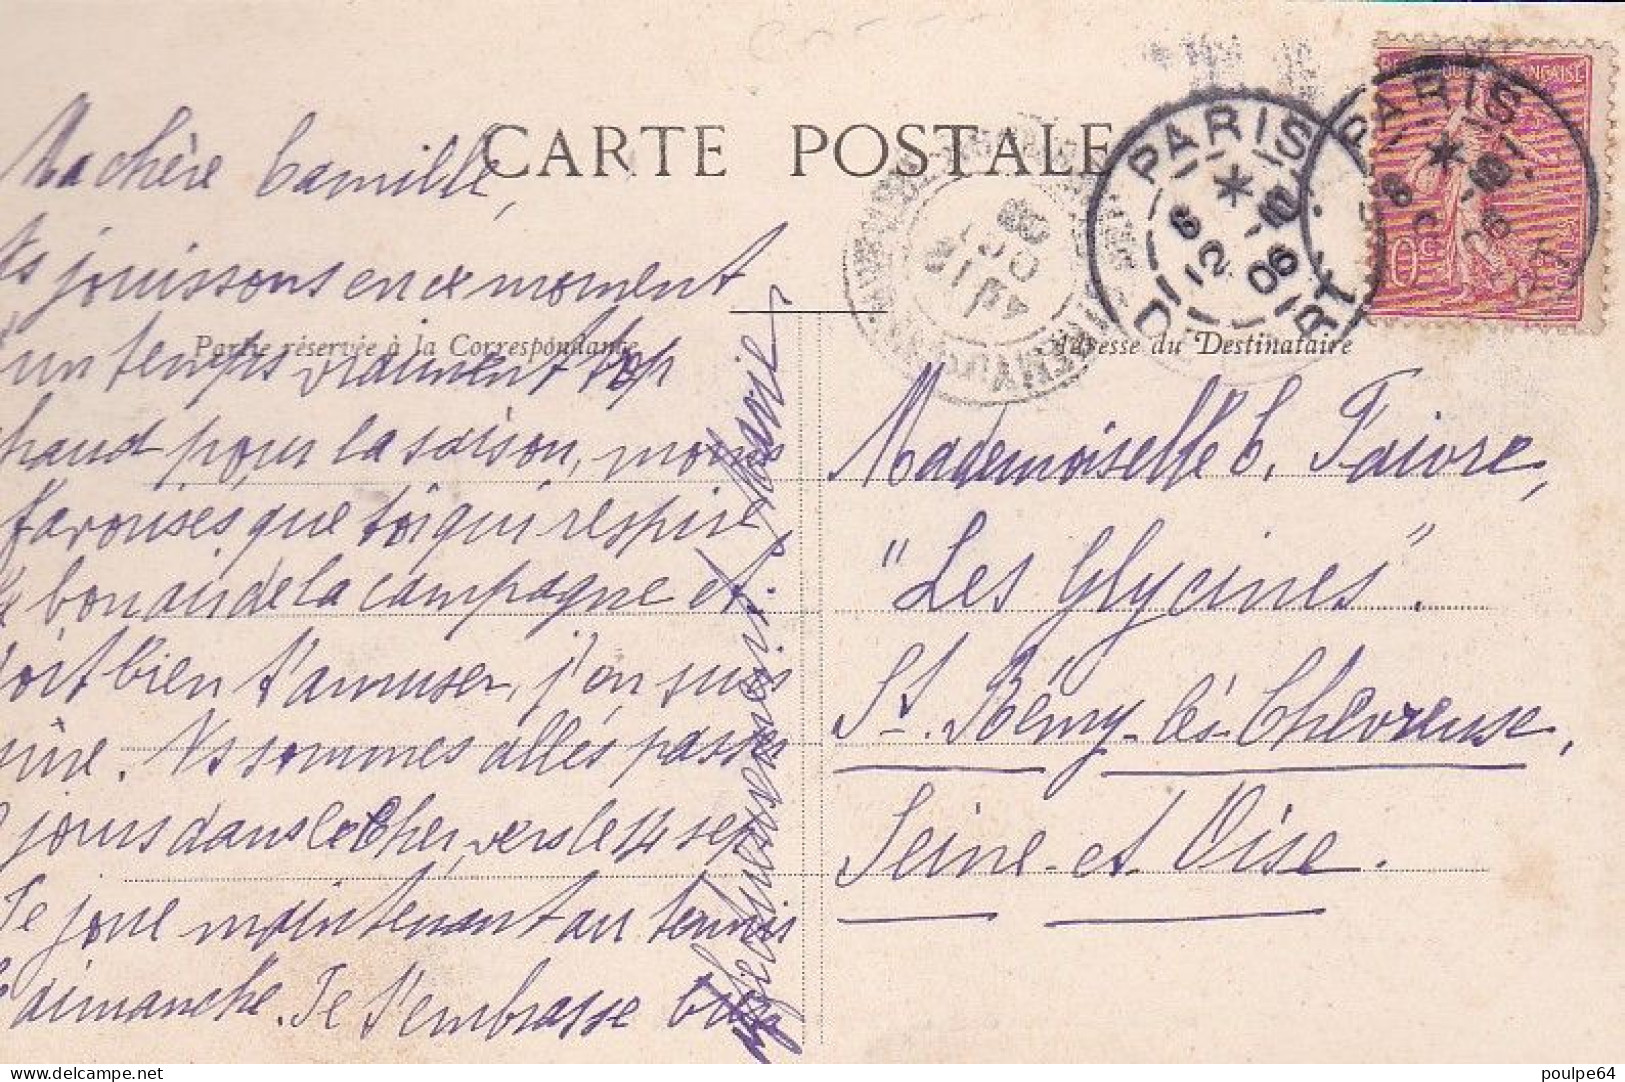 CARTE POSTALE
Partie réservée à la Correspondance
Adresse du Destinataire
Ma chère Camille,
Ns jouissons en ce moment
d'un temps vraiment trop
chaud pour la saison, moins
favorisés que toi qui respire
le bon air de la campagne et
doit bien t'amuser, j'en suis
sûre. Ns sommes allés passer
jours dans le Cher, vers le 14 sept
Je joue maintenant au tennis
le dimanche. Je t'embrasse bien
Mademoiselle C. Faivre,
"Les Glycines".
St. Rémy-lès-Chevreuse,
Seine-et-Oise.
PARIS
8 * 10
12 06
PARIS
8 * 10
06
10c
delcampe.net
poulpe64